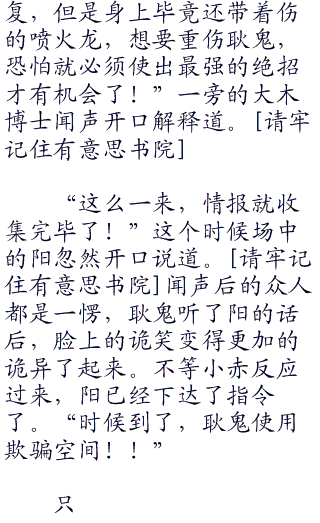 复，但是身上毕竟还带着伤
的喷火龙，想要重伤耿鬼，
恐怕就必须使出最强的绝招
才有机会了！”一旁的大木
博士闻声开口解释道。[请牢
记住有意思书院]
“这么一来，情报就收
集完毕了！”这个时候场中
的阳忽然开口说道。[请牢记
住有意思书院]闻声后的众人
都是一愣，耿鬼听了阳的话
后，脸上的诡笑变得更加的
诡异了起来。不等小赤反应
过来，阳已经下达了指令
了。“时候到了，耿鬼使用
欺骗空间！！”
只